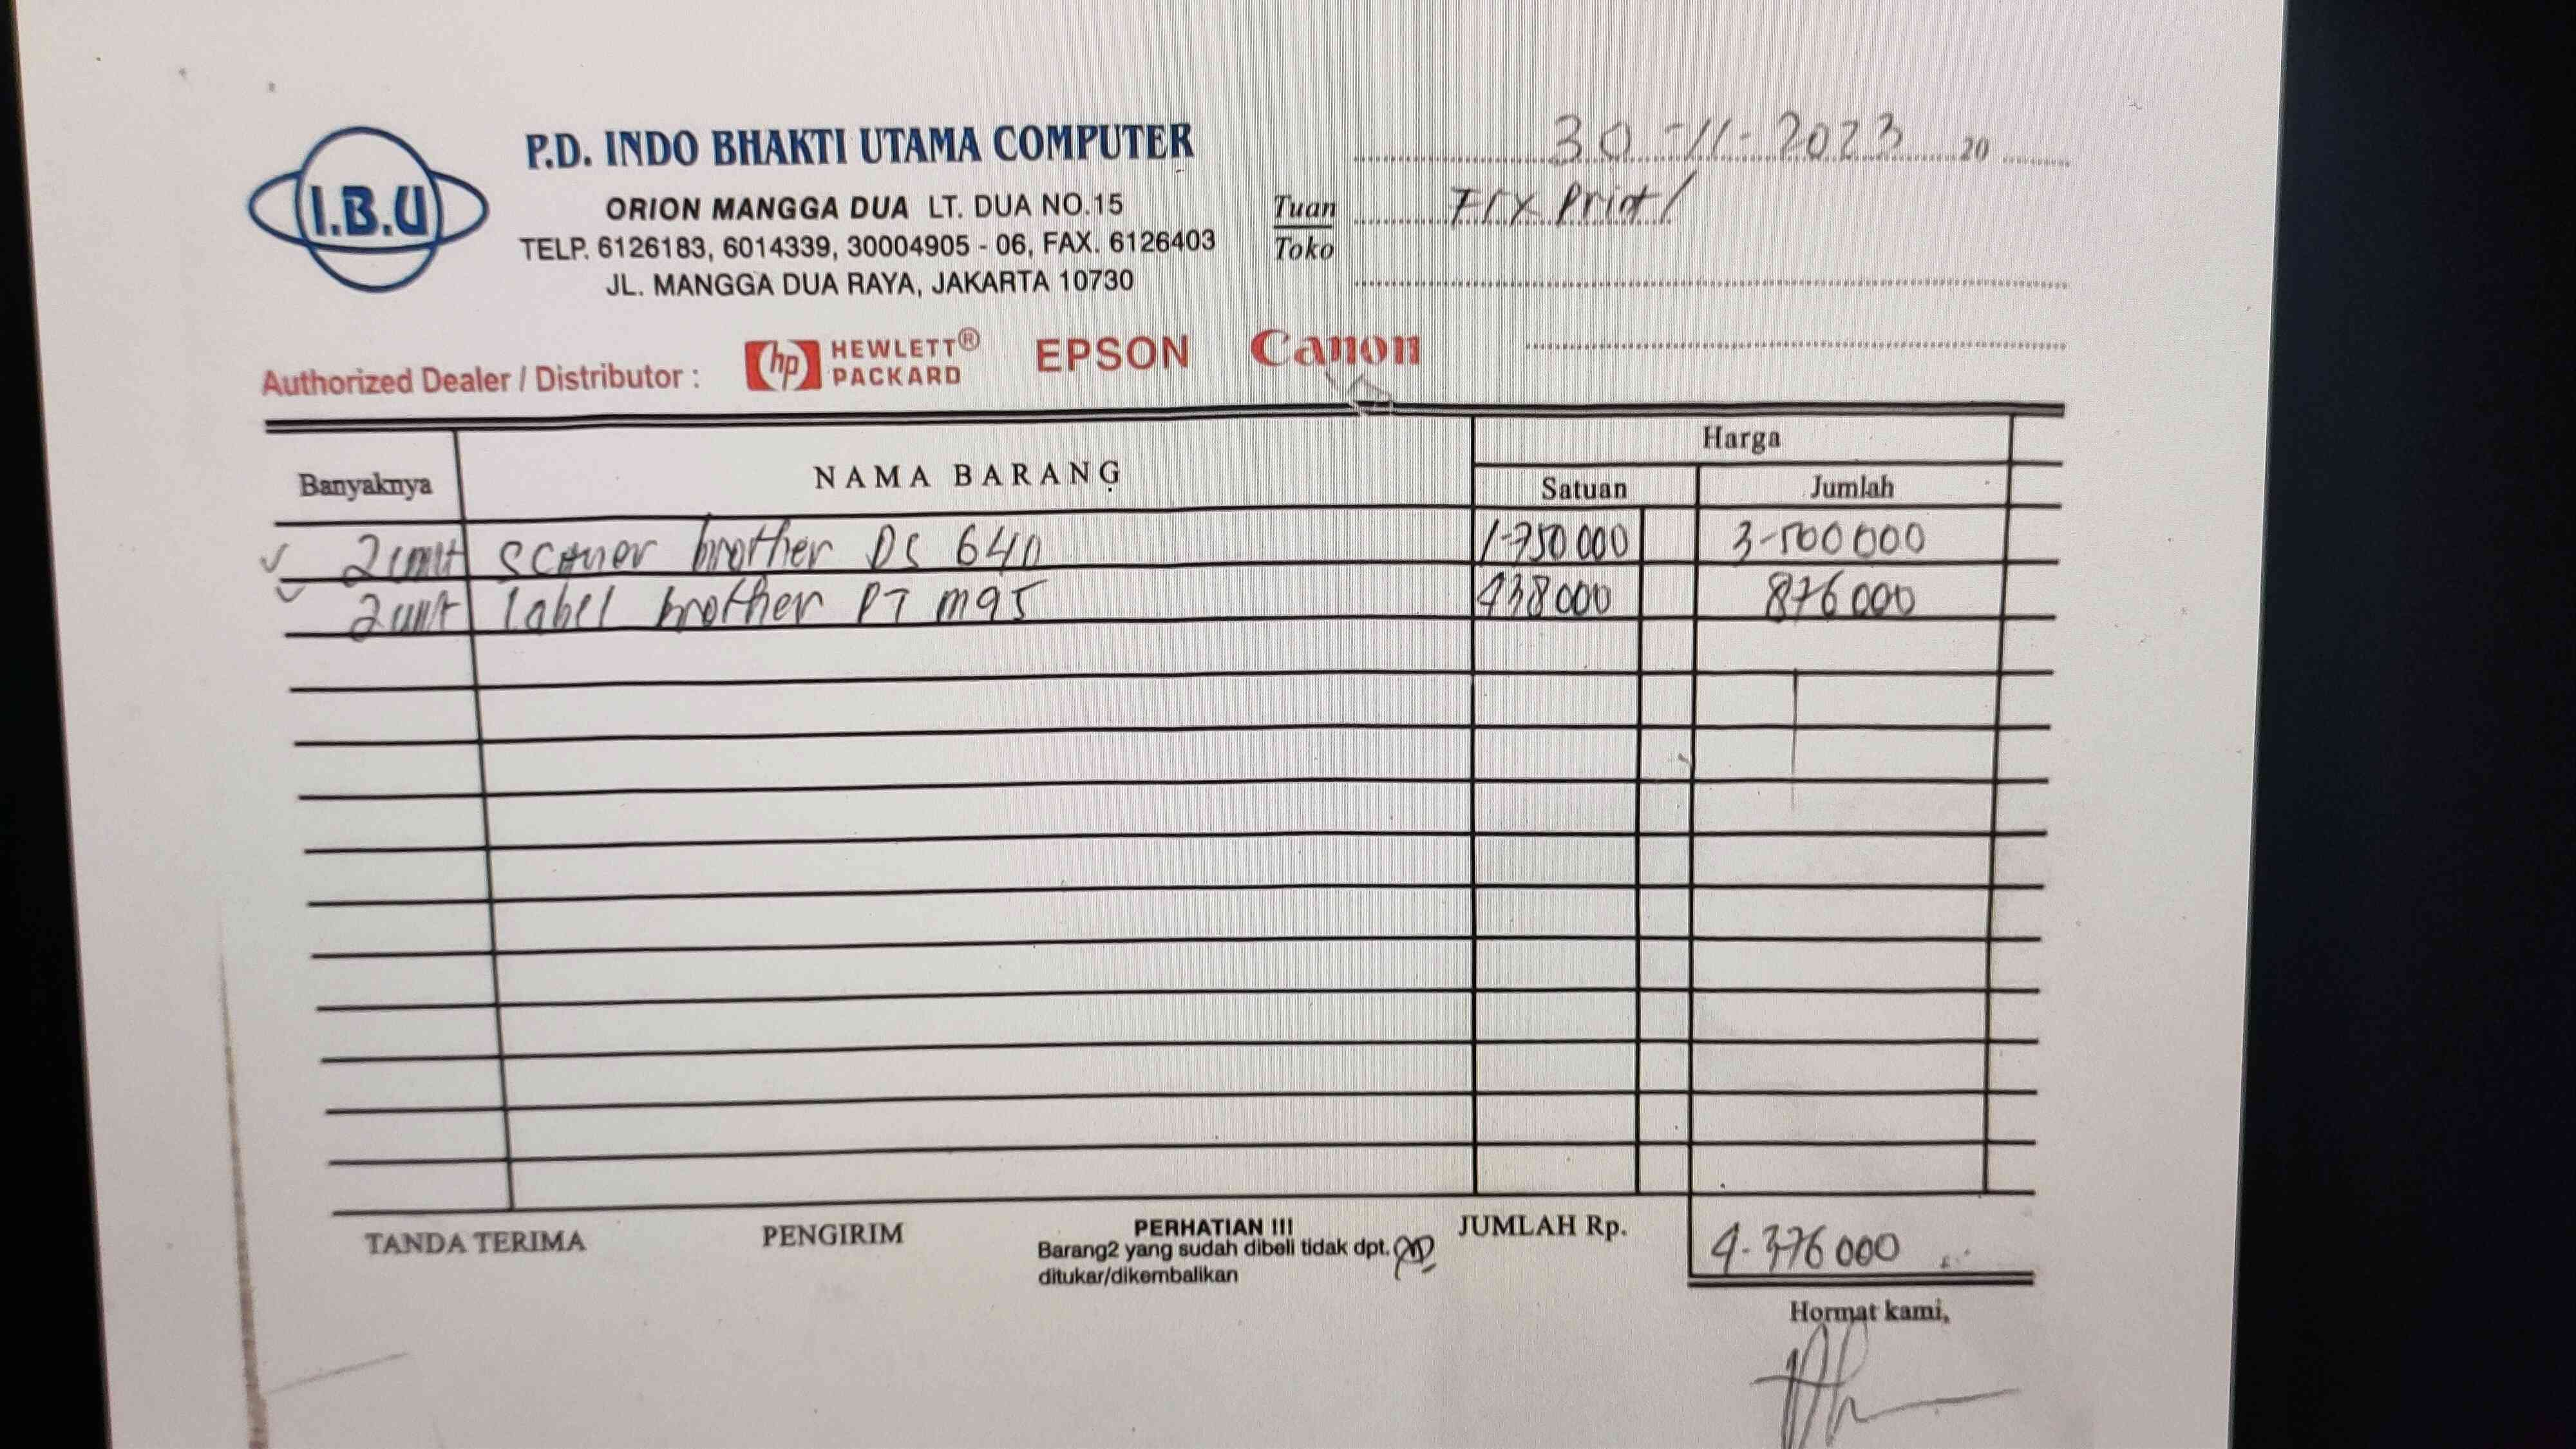 I.B.U
P.D. INDO BHAKTI UTAMA COMPUTER
ORION MANGGA DUA LT. DUA NO.15
TELP. 6126183, 6014339, 30004905 - 06, FAX. 6126403
JL. MANGGA DUA RAYA, JAKARTA 10730
30-11-2023 20
Tuan
Toko
Print
Authorized Dealer / Distributor : hp HEWLETT® PACKARD EPSON Canon
Banyaknya NAMA BARANG Harga
Satuan Jumlah
2 unit scaner brother DS 640 1-750 000 3-500 000
2 unit label brother PT M95 438 000 876 000
TANDA TERIMA PENGIRIM PERHATIAN III JUMLAH Rp. 4-376 000
Barang2 yang sudah dibeli tidak dpt.
ditukar/dikembalikan
Hormat kami,